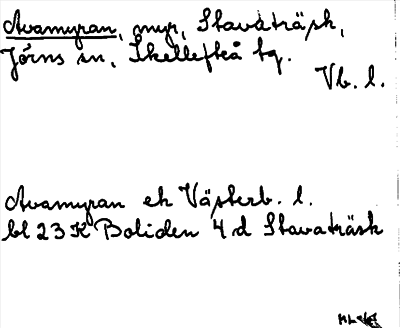 Avamyran, myr, Stavaträsk,
Jörns sn, Skellefteå tg.
Vb. l.
Avamyran ek Västerb. l.
bl 23 K Boliden 4 d Stavaträsk